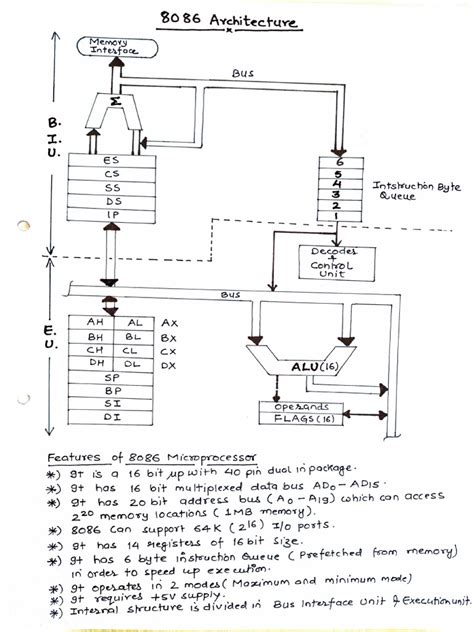 8086 Architecture
Memory
Interface
BUS
Σ
B.
I.
U.
ES
CS
SS
DS
IP
6
5
4
3
2
1
Intstruction Byte
Queue
Decoder
+
Control
Unit
BUS
E.
U.
AH AL AX
BH BL BX
CH CL CX
DH DL DX
SP
BP
SI
DI
ALU(16)
Operands
FLAGS(16)
Features of 8086 Microprocessor
*) It is a 16 bit μp with 40 pin dual in package.
*) It has 16 bit multiplexed data bus AD0 - AD15.
*) It has 20 bit address bus (A0 - A19) which can access
2^20 memory locations (1MB memory).
*) 8086 can support 64K (2^16) I/O ports.
*) It has 14 registers of 16 bit size.
*) It has 6 byte instruction Queue (Prefetched from memory)
in order to speed up execution.
*) It operates in 2 modes (Maximum and minimum mode)
*) It requires +5V supply.
*) Internal structure is divided in Bus Interface Unit & Execution unit.